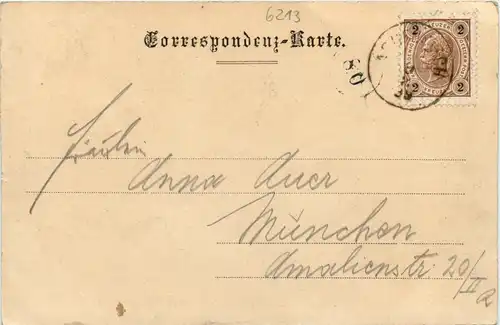 6213
Correspondenz-Karte.
2 2
2 2
KREUZER
80
Fräulein
Anna Auer
München
Amalienstr. 20/II
a